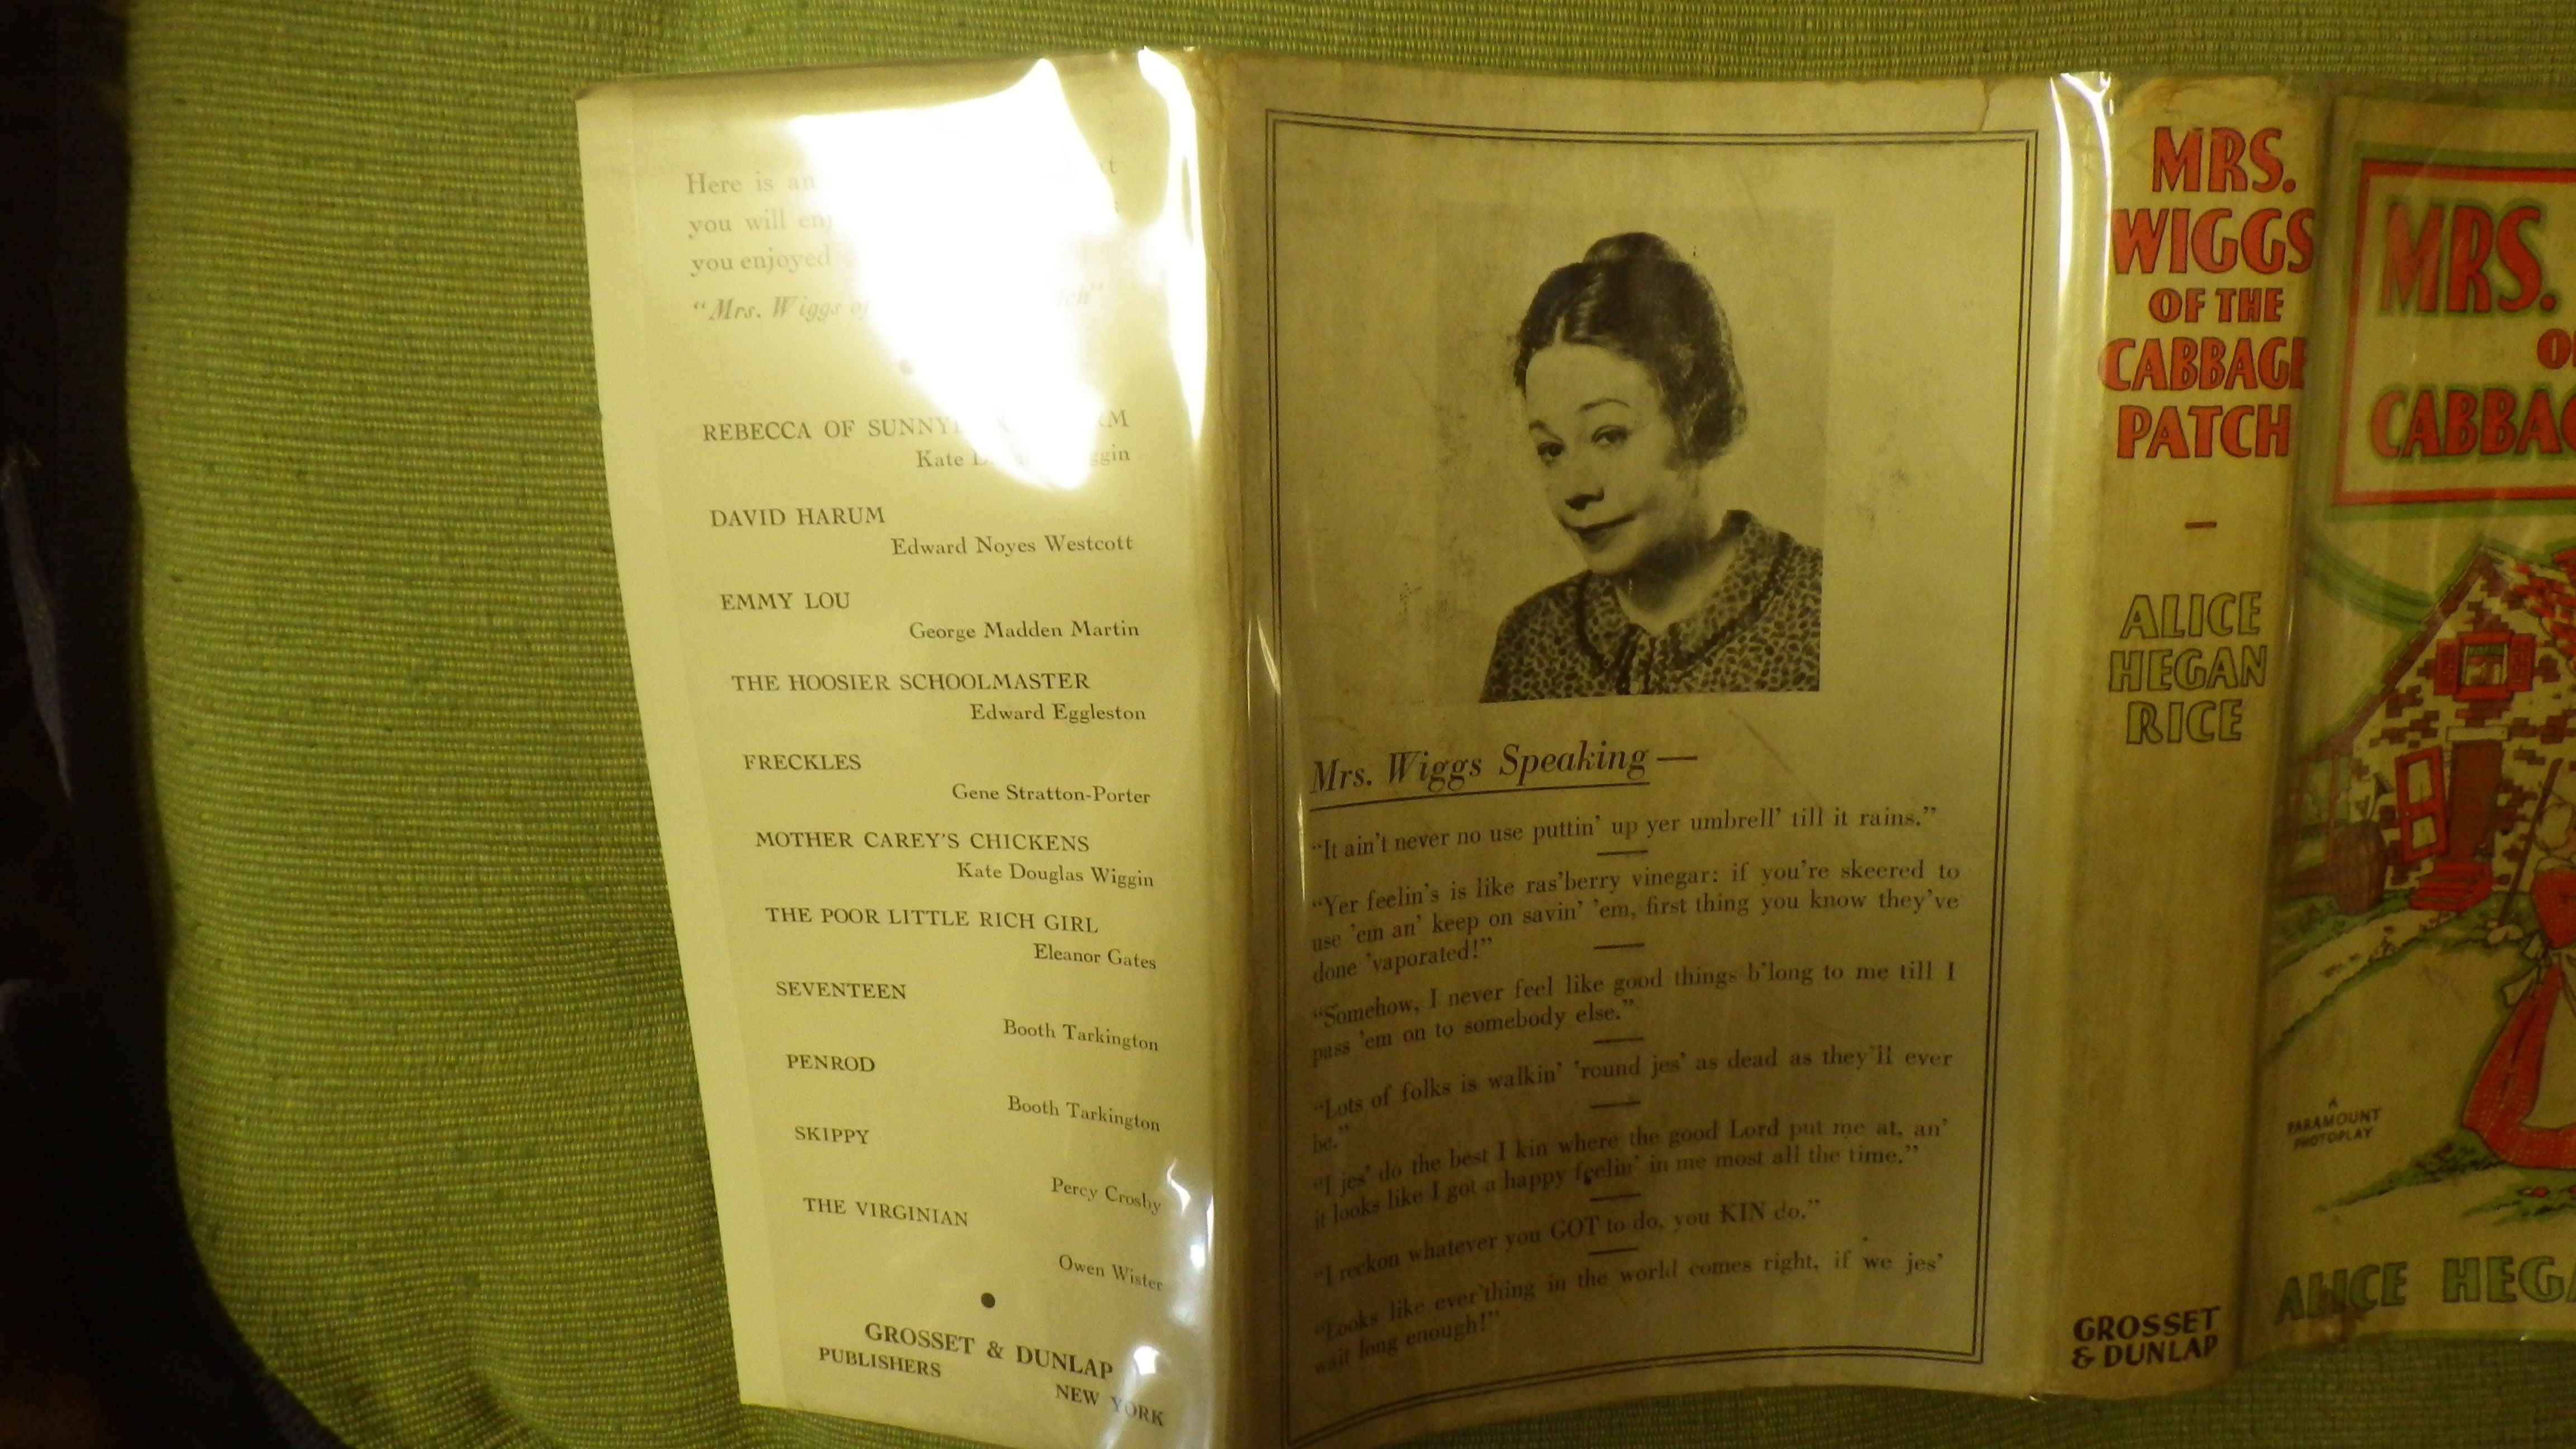 Here is an
you will enj
you enjoyed
"Mrs. Wiggs of
REBECCA OF
Kate
DAVID HARUM
Edward Noyes Westcott
EMMY LOU
George Madden Martin
THE HOOSIER SCHOOLMASTER
Edward Eggleston
FRECKLES
Gene Stratton-Porter
MOTHER CAREY'S CHICKENS
Kate Douglas Wiggin
THE POOR LITTLE RICH GIRL
Eleanor Gates
SEVENTEEN
Booth Tarkington
PENROD
Booth Tarkington
SKIPPY
Percy Crosby
THE VIRGINIAN
Owen Wister
GROSSET & DUNLAP
PUBLISHERS
NEW YORK
Mrs. Wiggs Speaking—
"It ain't never no use puttin' up yer umbrell' till it rains."
"Yer feelin's is like ras'berry vinegar: if you're skeered to
use 'em an' keep on savin' 'em, first thing you know they've
done 'vaporated!"
"Somehow, I never feel like good things b'long to me till I
pass 'em on to somebody else."
"Lots of folks is walkin' 'round jes' as dead as they'll ever
be."
"I jes' do the best I kin where the good Lord put me at, an'
it looks like I got a happy feelin' in me most all the time."
"I reckon whatever you GOT to do, you KIN do."
"Looks like ever'thing in the world comes right, if we jes'
wait long enough!"
MRS.
WIGGS
OF THE
CABBAGE
PATCH
ALICE
HEGAN
RICE
GROSSET
& DUNLAP
MRS.
CABBAG
A
PARAMOUNT
PHOTOPLAY
ALICE HEGA